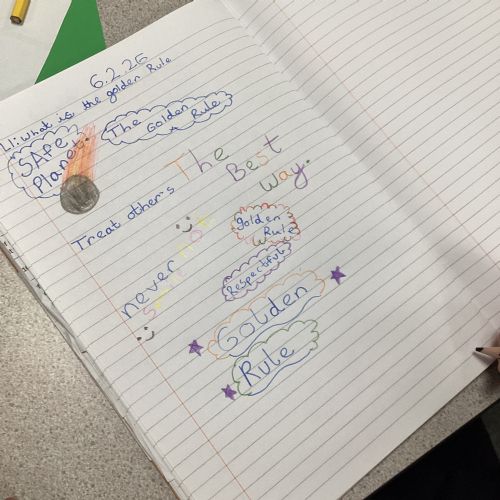 6.2.26
LI: What is the golden Rule
SAfe
Planet.
The
Golden
Rule
Treat other's
The
Best
Way.
never
golden
Rule
Respectful
Golden
Rule